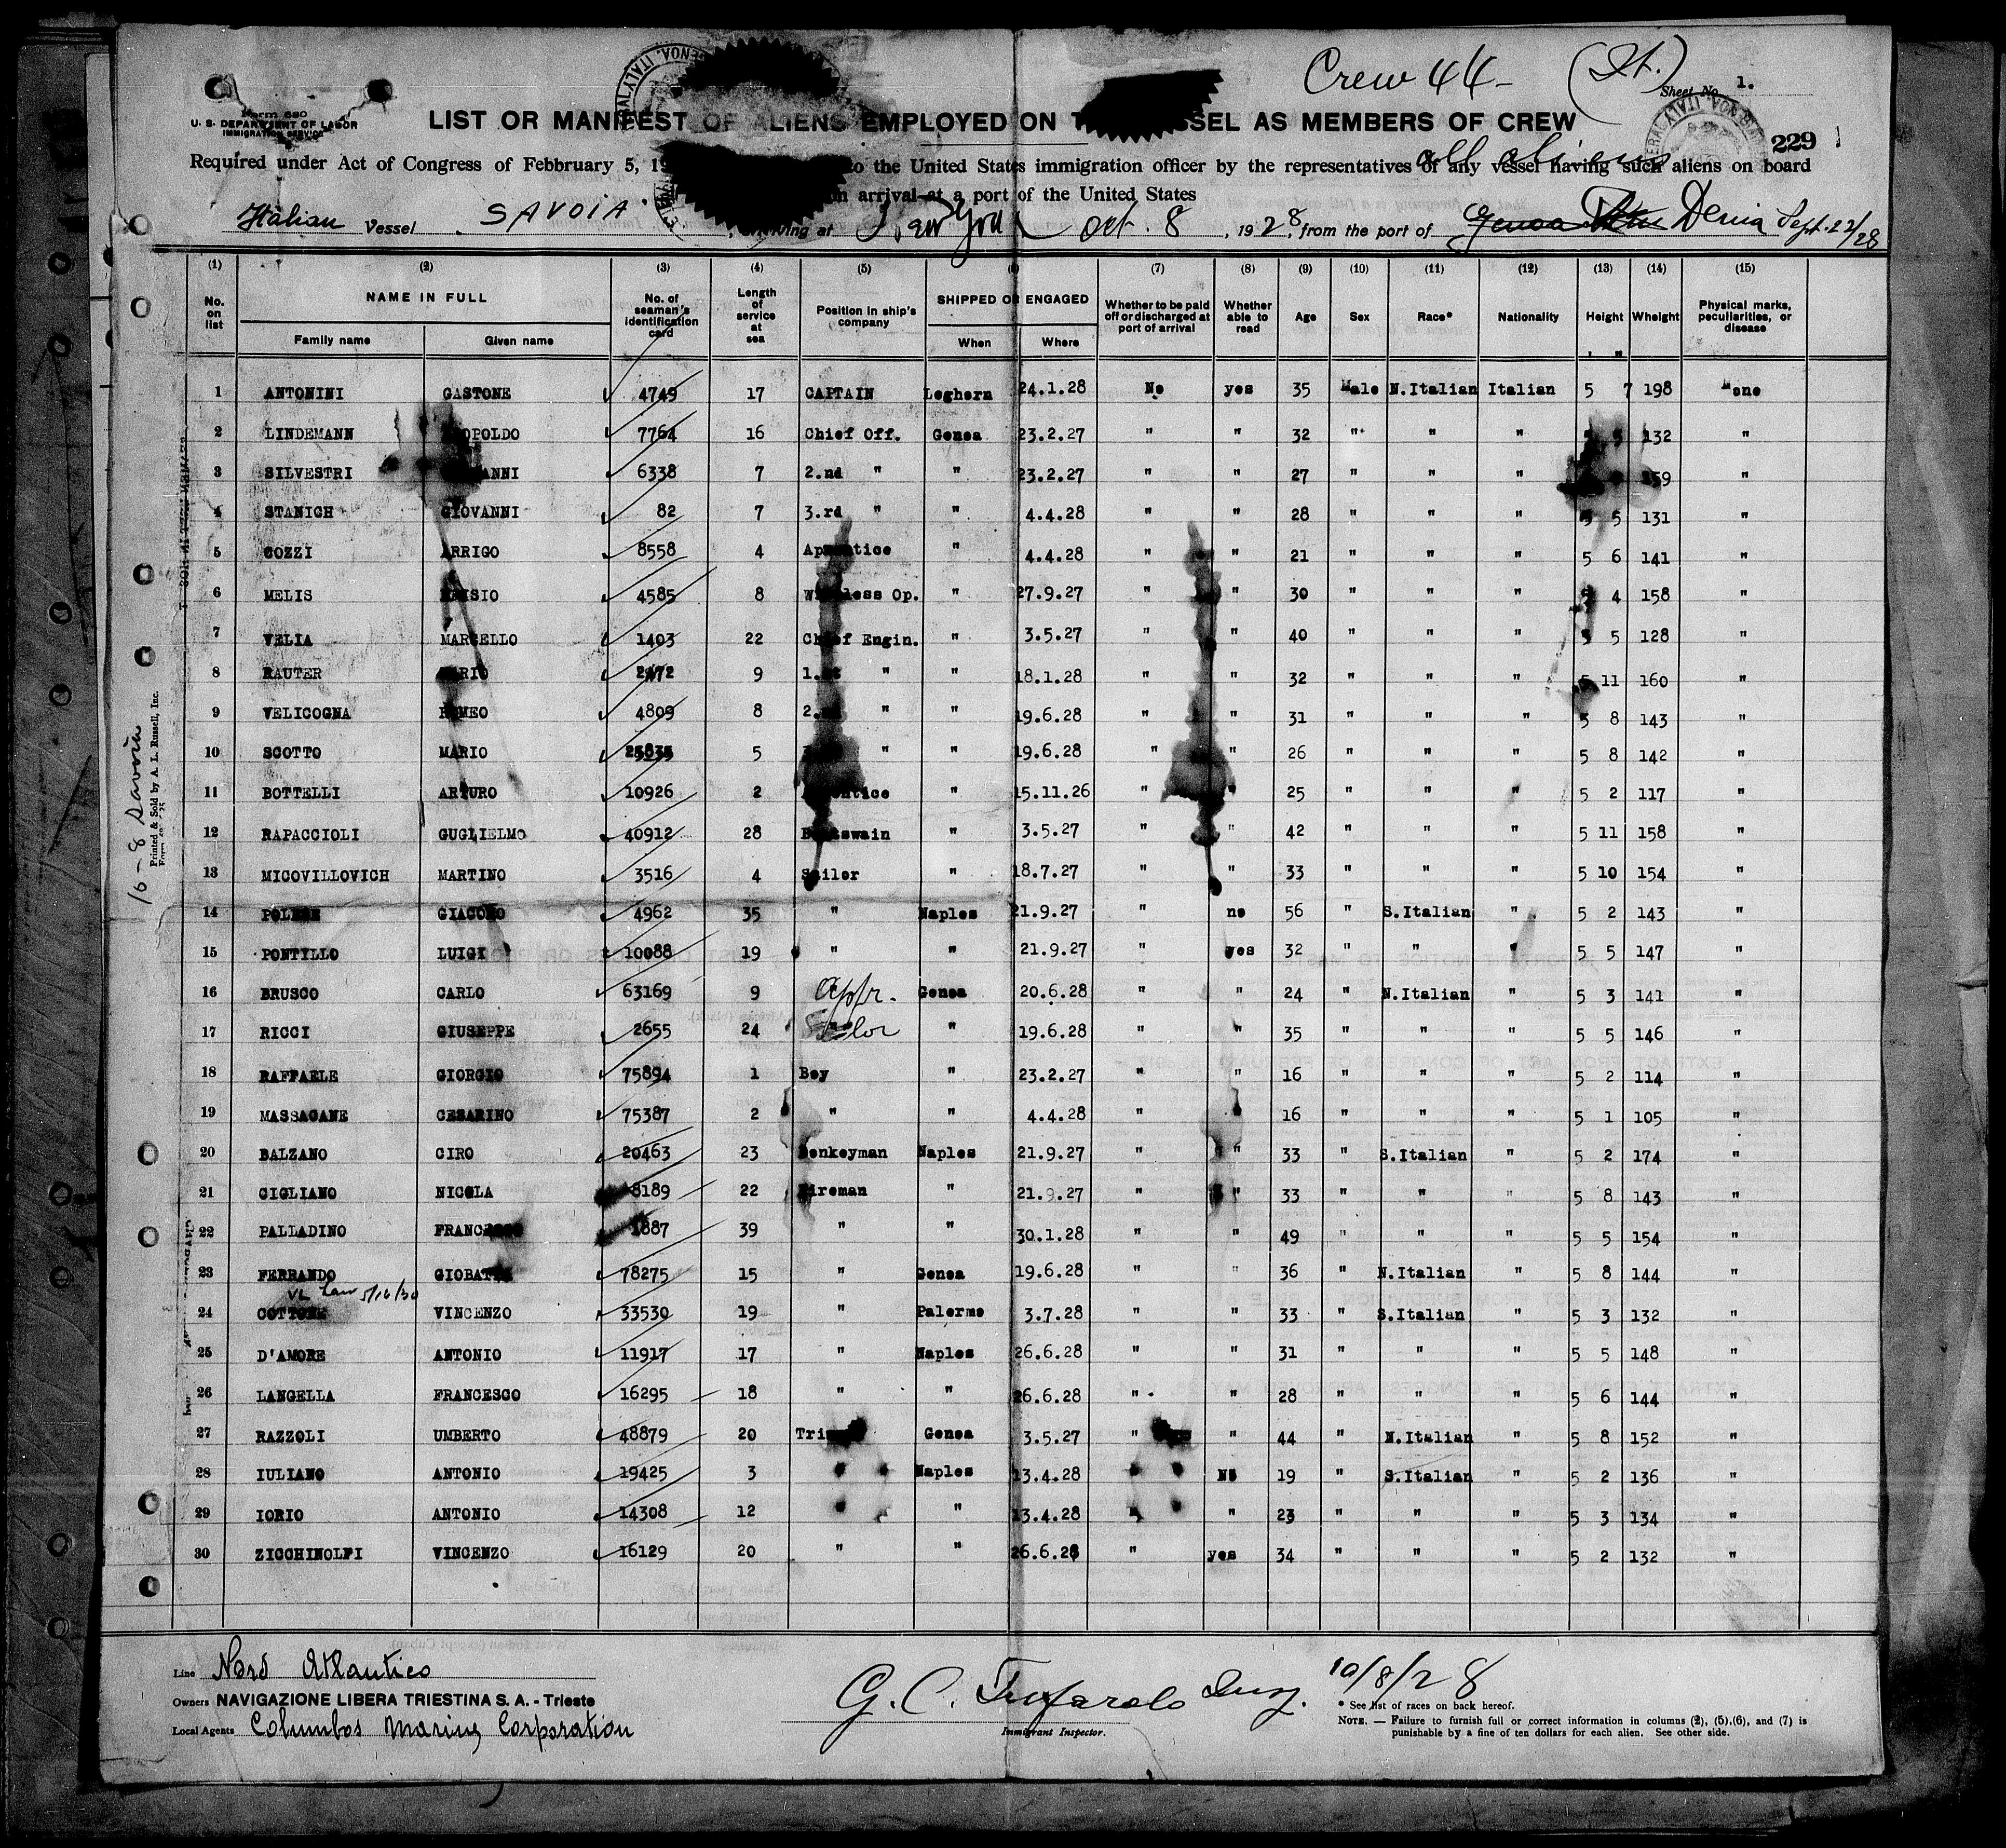 Crew 44- (It.)
Sheet No. 1.
Form 680
U. S. DEPARTMENT OF LABOR
IMMIGRATION SERVICE
LIST OR MANIFEST OF ALIENS EMPLOYED ON SSEL AS MEMBERS OF CREW
229
all aliens
Required under Act of Congress of Febbruary 5, 19 to the United States immigration officer by the representatives of any vessel having such aliens on board
on arrival at a port of the United States
Italian Vessel SAVOIA arriving at New York Oct. 8, 1928, from the port of Genoa Denia Sept. 22/28
(1) (2) (3) (4) (5) (6) (7) (8) (9) (10) (11) (12) (13) (14) (15)
No. on list NAME IN FULL Family name Given name No. of seaman's identification card Length of service at sea Position in ship's company SHIPPED OR ENGAGED When Where Whether to be paid off or discharged at port of arrival Whether able to read Age Sex Race* Nationality Height Wheight Physical marks, peculiarities, or disease
1 ANTONINI GASTONE 4749 17 CAPTAIN Leghorn 24.1.28 No yes 35 Male N.Italian Italian 5 7 198 None
2 LINDEMANN OPOLDO 7764 16 Chief Off. Genoa 23.2.27 " " 32 " " " 5 132 "
3 SILVESTRI ANNI 6338 7 2.nd " " 23.2.27 " " 27 " " " 159 "
4 STANICH GIOVANNI 82 7 3.rd " " 4.4.28 " " 28 " " " 5 5 131 "
5 COZZI ARRIGO 8558 4 Aprentice " 4.4.28 " " 21 " " " 5 6 141 "
6 MELIS 4585 8 Wireless Op. " 27.9.27 " " 30 " " " 5 4 158 "
7 VELIA MARCELLO 1403 22 Chief Engin. " 3.5.27 " " 40 " " " 5 5 128 "
8 RAUTER MARIO 2472 9 1.st " " 18.1.28 " " 32 " " " 5 11 160 "
9 VELICOGNA ROMEO 4809 8 2. " " 19.6.28 " " 31 " " " 5 8 143 "
10 SCOTTO MARIO 25835 5 " " 19.6.28 " " 26 " " " 5 8 142 "
11 BOTTELLI ARTURO 10926 2 ntice " 15.11.26 " " 25 " " " 5 2 117 "
12 RAPACCIOLI GUGLIELMO 40912 28 Boatswain " 3.5.27 " " 42 " " " 5 11 158 "
13 MICOVILLOVICH MARTINO 3516 4 Sailor " 18.7.27 " " 33 " " " 5 10 154 "
14 POLESE GIACOMO 4962 35 " Naples 21.9.27 " no 56 " S.Italian " 5 2 143 "
15 PONTILLO LUIGI 10088 19 " " 21.9.27 " yes 32 " " " 5 5 147 "
16 BRUSCO CARLO 63169 9 Appr. Genoa 20.6.28 " " 24 " N.Italian " 5 3 141 "
17 RICCI GIUSEPPE 2655 24 Sailor " 19.6.28 " " 35 " " " 5 5 146 "
18 RAFFAELE GIORGIO 75894 1 Boy " 23.2.27 " " 16 " " " 5 2 114 "
19 MASSAGANE CESARINO 75387 2 " " 4.4.28 " " 16 " " " 5 1 105 "
20 BALZANO CIRO 20463 23 Donkeyman Naples 21.9.27 " " 33 " S.Italian " 5 2 174 "
21 CIGLIANO NICOLA 8189 22 Fireman " 21.9.27 " " 33 " " " 5 8 143 "
22 PALLADINO FRANCESCO 1887 39 " " 30.1.28 " " 49 " " " 5 5 154 "
23 FERRANDO GIOBATTA 78275 15 " Genoa 19.6.28 " " 36 " N.Italian " 5 8 144 "
5/16/30
24 COTTONE VINCENZO 33530 19 " Palermo 3.7.28 " " 33 " S.Italian " 5 3 132 "
25 D'AMORE ANTONIO 11917 17 " Naples 26.6.28 " " 31 " " " 5 5 148 "
26 LANGELLA FRANCESCO 16295 18 " " 26.6.28 " " 28 " " " 5 6 144 "
27 RAZZOLI UMBERTO 48879 20 Tri Genoa 3.5.27 " " 44 " N.Italian " 5 8 152 "
28 IULIANO ANTONIO 19425 3 Naples 13.4.28 No 19 " S.Italian " 5 2 136 "
29 IORIO ANTONIO 14308 12 " 13.4.28 " 23 " " " 5 3 134 "
30 ZICCHINOLFI VINCENZO 16129 20 " " 26.6.28 " yes 34 " " " 5 2 132 "
10-8 Savoia
Printed & Sold by A. L. Russell, Inc.
Line Nord Atlantico
Owners NAVIGAZIONE LIBERA TRIESTINA S. A. - Trieste
Local Agents Columbos Marine Corporation
G. C. Insp. 10/8/28
Immigrant Inspector.
* See list of races on back hereof.
NOTE. — Failure to furnish full or correct information in columns (2), (5),(6), and (7) is
punishable by a fine of ten dollars for each alien. See other side.